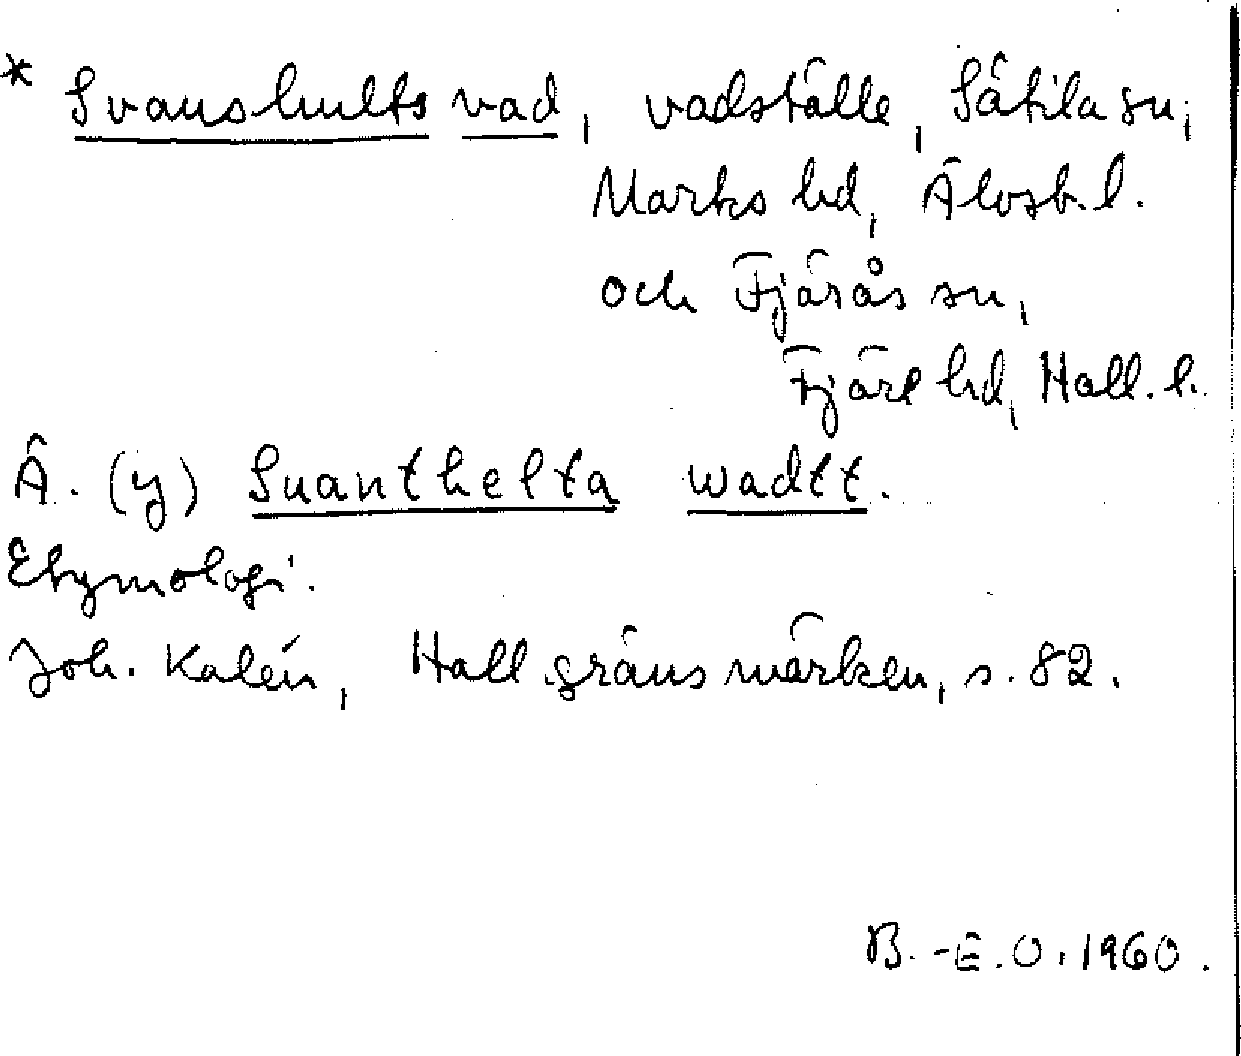 * Svanshults vad, vadställe, Sätila sn,
Marks hd, Älvsb. l.
och Fjärås sn,
Fjäre hd, Hall. l.
Ä. (y) Suanthelta wadtt.
Etymologi.
Joh. Kalén, Hall gränsmärken, s. 82.
B.-E.O. 1960.